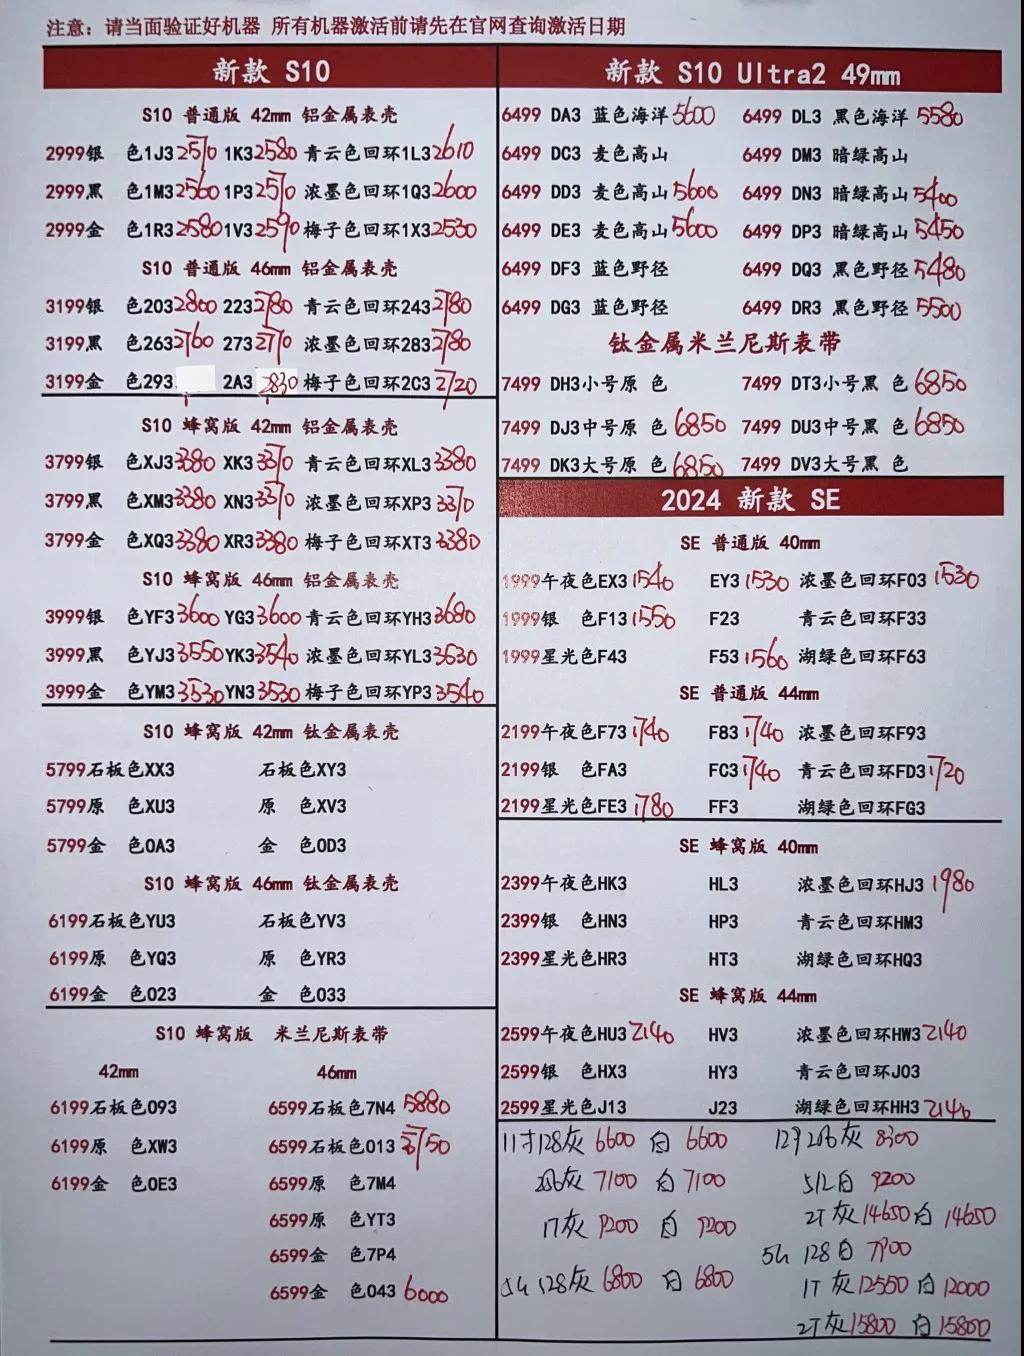 注意：请当面验证好机器 所有机器激活前请先在官网查询激活日期
新款 S10
S10 普通版 42mm 铝金属表壳
2999银 色1J3 2570 1K3 2580 青云色回环1L3 2610
2999黑 色1M3 2560 1P3 2570 浓墨色回环1Q3 2600
2999金 色1R3 2580 1V3 2590 梅子色回环1X3 2530
S10 普通版 46mm 铝金属表壳
3199银 色203 2800 223 2780 青云色回环243 2780
3199黑 色263 2760 273 2770 浓墨色回环283 2780
3199金 色293 2A3 2830 梅子色回环2C3 2720
S10 蜂窝版 42mm 铝金属表壳
3799银 色XJ3 3380 XK3 3370 青云色回环XL3 3380
3799黑 色XM3 3380 XN3 3370 浓墨色回环XP3 3370
3799金 色XQ3 3380 XR3 3380 梅子色回环XT3 3380
S10 蜂窝版 46mm 铝金属表壳
3999银 色YF3 3600 YG3 3600 青云色回环YH3 3680
3999黑 色YJ3 3550 YK3 3540 浓墨色回环YL3 3530
3999金 色YM3 3530 YN3 3530 梅子色回环YP3 3540
S10 蜂窝版 42mm 钛金属表壳
5799石板色XX3 石板色XY3
5799原 色XU3 原 色XV3
5799金 色0A3 金 色0D3
S10 蜂窝版 46mm 钛金属表壳
6199石板色YU3 石板色YV3
6199原 色YQ3 原 色YR3
6199金 色023 金 色033
S10 蜂窝版 米兰尼斯表带
42mm 46mm
6199石板色093 6599石板色7N4 5880
6199原 色XW3 6599石板色013 5750
6199金 色0E3 6599原 色7M4
6599原 色YT3
6599金 色7P4
6599金 色043 6000
新款 S10 Ultra2 49mm
6499 DA3 蓝色海洋 5600 6499 DL3 黑色海洋 5580
6499 DC3 麦色高山 6499 DM3 暗绿高山
6499 DD3 麦色高山 5600 6499 DN3 暗绿高山 5400
6499 DE3 麦色高山 5600 6499 DP3 暗绿高山 5450
6499 DF3 蓝色野径 6499 DQ3 黑色野径 5480
6499 DG3 蓝色野径 6499 DR3 黑色野径 5500
钛金属米兰尼斯表带
7499 DH3小号原 色 7499 DT3小号黑 色 6850
7499 DJ3中号原 色 6850 7499 DU3中号黑 色 6850
7499 DK3大号原 色 6850 7499 DV3大号黑 色
2024 新款 SE
SE 普通版 40mm
1999午夜色EX3 1540 EY3 1530 浓墨色回环F03 1530
1999银 色F13 1550 F23 青云色回环F33
1999星光色F43 F53 1560 湖绿色回环F63
SE 普通版 44mm
2199午夜色F73 1740 F83 1740 浓墨色回环F93
2199银 色FA3 FC3 1740 青云色回环FD3 1720
2199星光色FE3 1780 FF3 湖绿色回环FG3
SE 蜂窝版 40mm
2399午夜色HK3 HL3 浓墨色回环HJ3 1980
2399银 色HN3 HP3 青云色回环HM3
2399星光色HR3 HT3 湖绿色回环HQ3
SE 蜂窝版 44mm
2599午夜色HU3 2140 HV3 浓墨色回环HW3 2140
2599银 色HX3 HY3 青云色回环J03
2599星光色J13 J23 湖绿色回环HH3 2140
11寸128灰 6600 白 6600 灰 8300
256灰 7100 白 7100 512白 9200
1T灰 9200 白 9200 2T 灰 14650 白 14650
5G 128白 7900
5G 128灰 6800 白 6800 1T 灰 12550 白 12000
2T灰 15800 白 15800